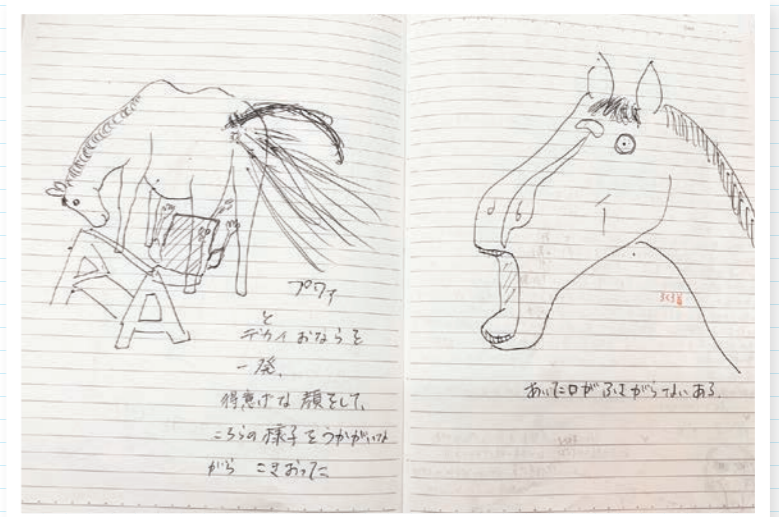 プワァ
と
デカイおならを
一発、
得意げな顔をして、
こちらの様子をうかがいな
がら こきおった
あいた口がふさがらないある。